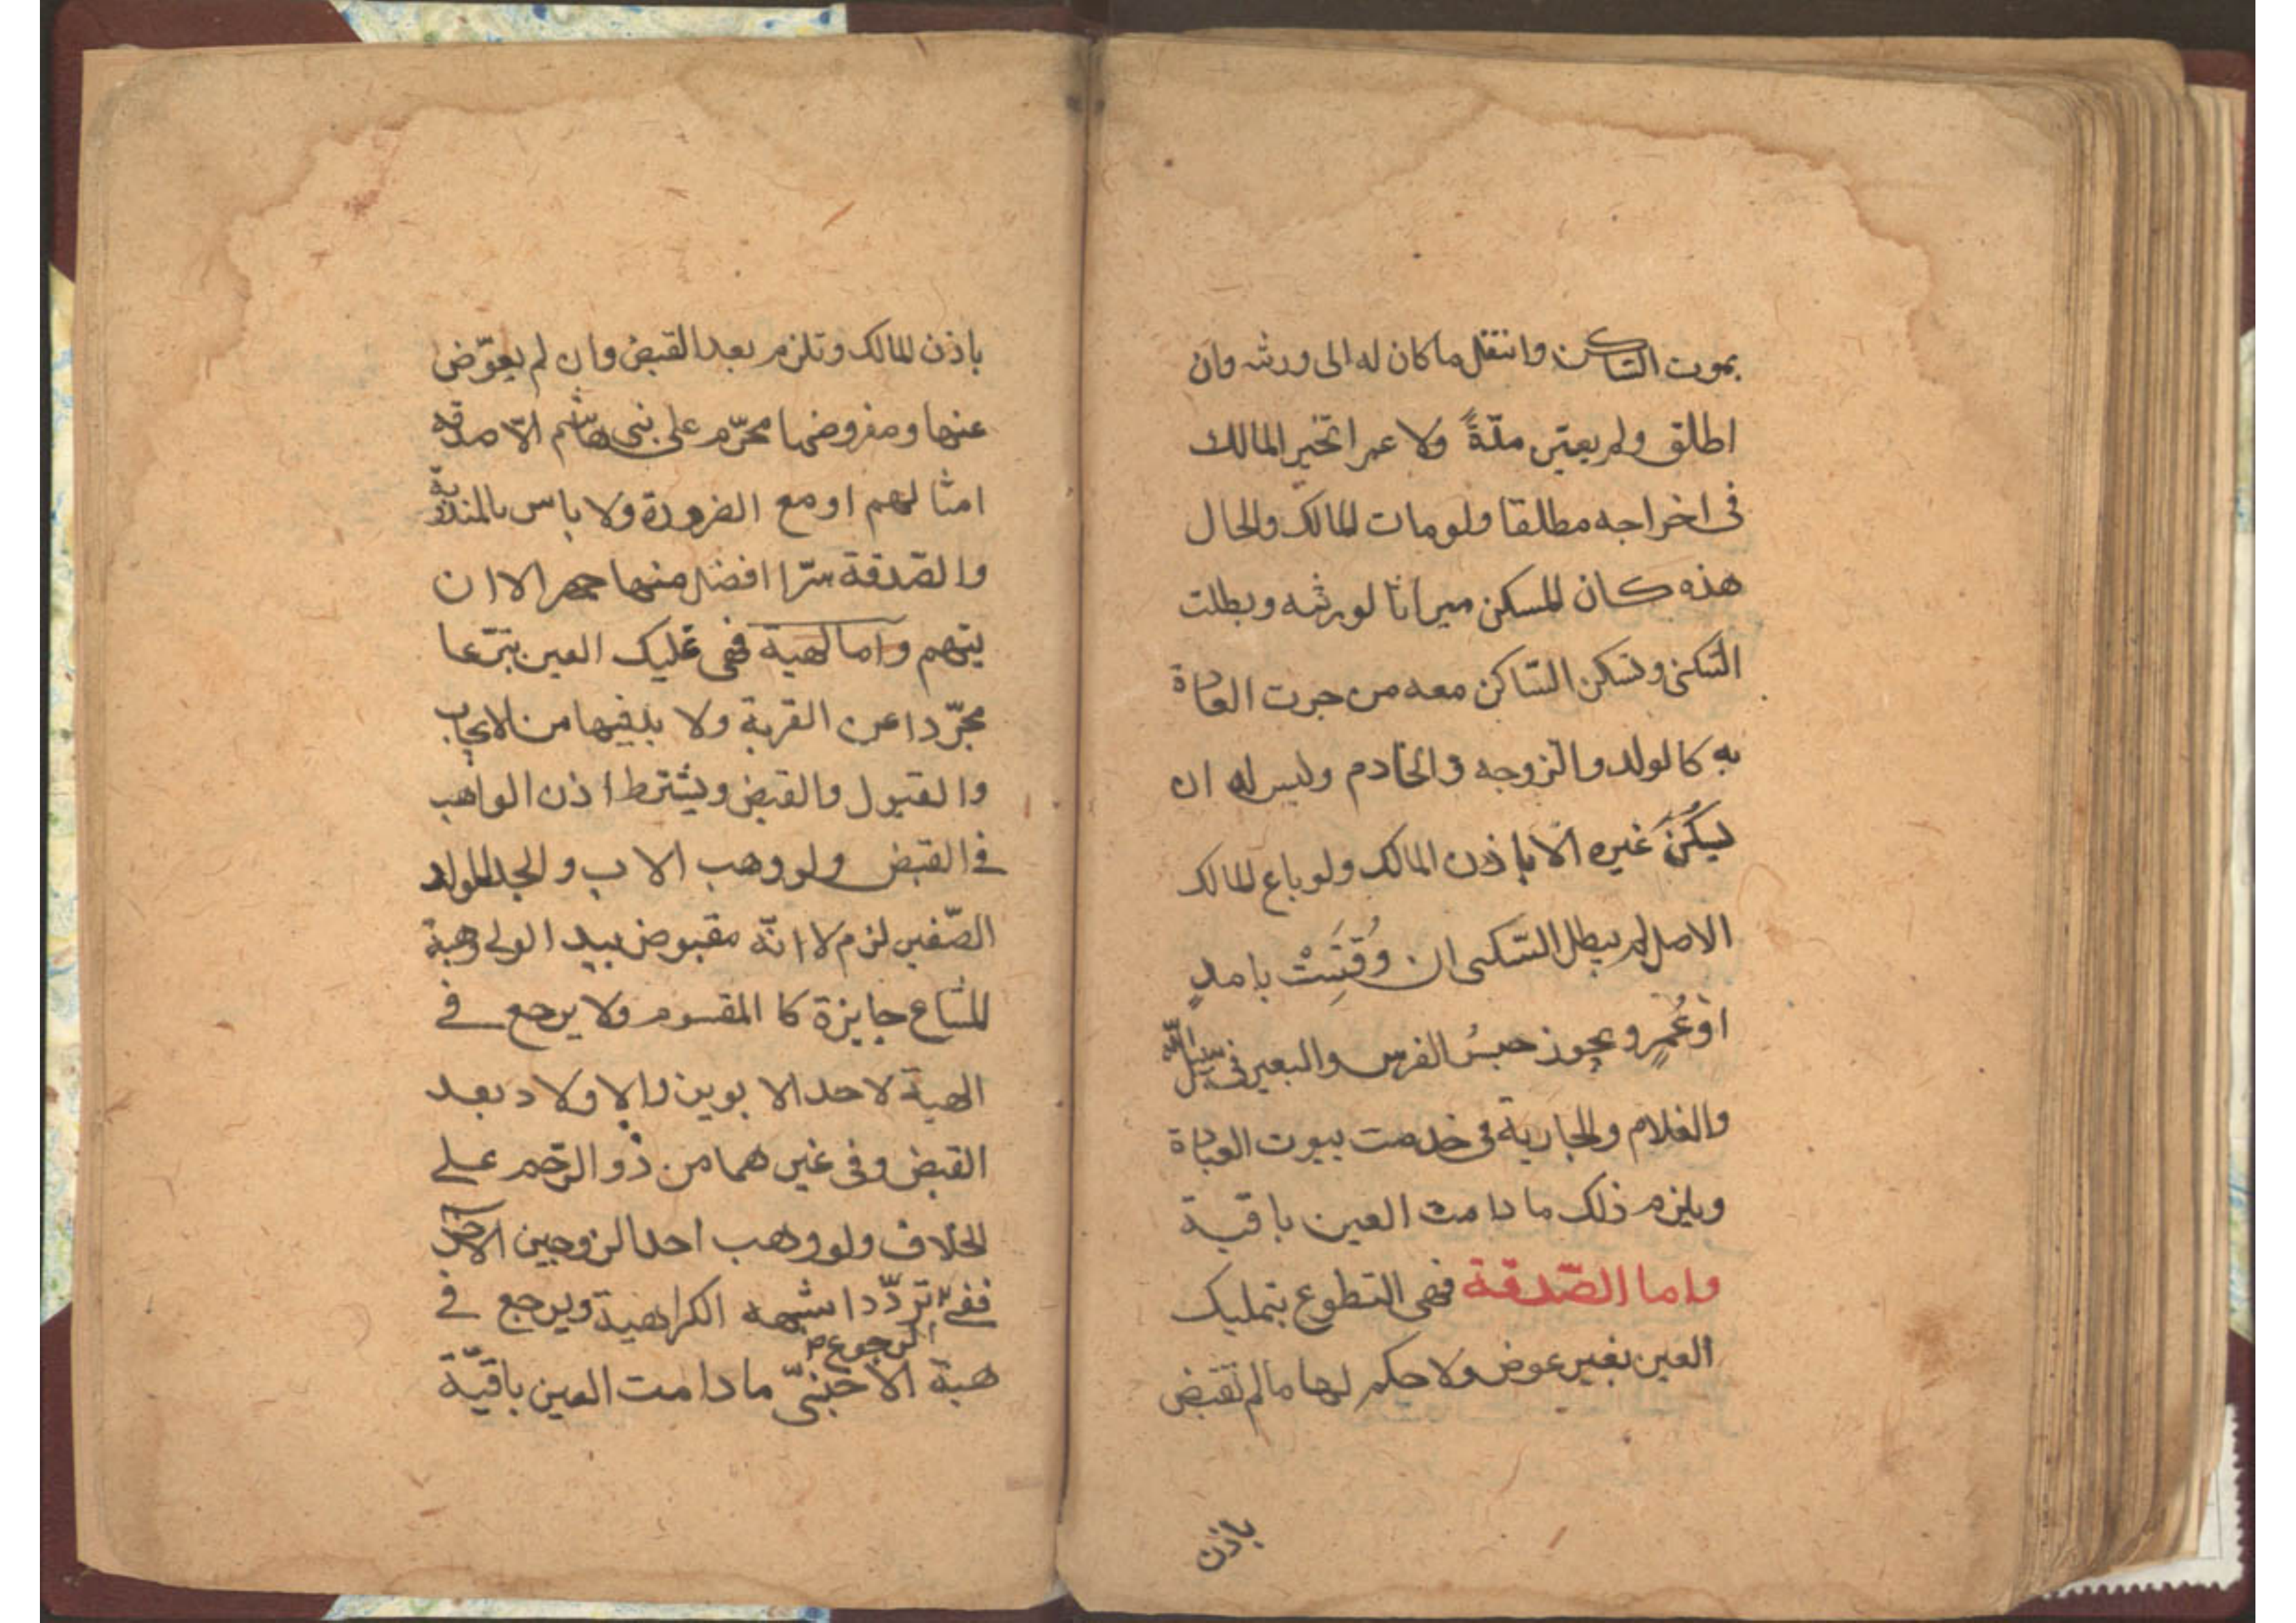 بموت الساكن وانتقل ما كان له الى ورثه وان
اطلق ولم يعيّن مدّةً ولا عمرا تخير المالك
فى اخراجه مطلقا ولو مات المالك والحال
هذه كان المسكن ميراثا لورثه وبطلت
السّكنى وتسكن السّاكن معه من جرت العادة
به كالولد والزوجه والخادم وليس له ان
ليكُنَ غيره الّا باذن المالك ولو باع المالك
الاصل لم يبطل السّكنى ان وُقتِتَْ بامدٍ
اوعُمرٍ ويجوز حبسُ الفرس والبعير فى سبيل اللّه
والغلام والجارية فى خدمت بيوت العبادة
ويلزم ذلك ما دامت العين باقية
واما الصّدقة فهى التطوع بتمليك
العين بغير عوض ولا حكم لها مالم تقبض
باذن
باذن المالك وتلزم بعد القبض وان لم يعوّض
عنها ومفروضها محرّم على بنى هاشم الّا صدقه
امثالهم او مع الضرورة ولا باس بالمندوبة
والصّدقة سرّا افضل منها جهرا الا ان
يتهم واما الهبة فهى تمليك العين تبرّعا
مجرّدا عن القربة ولا بد فيها من الايجاب
والقبول والقبض ويشترط اذن الواهب
فى القبض ولو وهب الاب والجد للولد
الصّغير لزم لا انّه مقبوض بيد الولى وهبة
المشاع جايزة كا المقسوم ولا يرجع فى
الهبة لاحد الابوين والاولاد بعد
القبض وفى غيرهما من ذو الرّحم على
الخلاف ولو وهب احد الزوجين الاخر
ففى تردّد اشبهه الكراهية ويرجع فى
الرجوع
هبة الاجنبىّ مادامت العين باقيّة